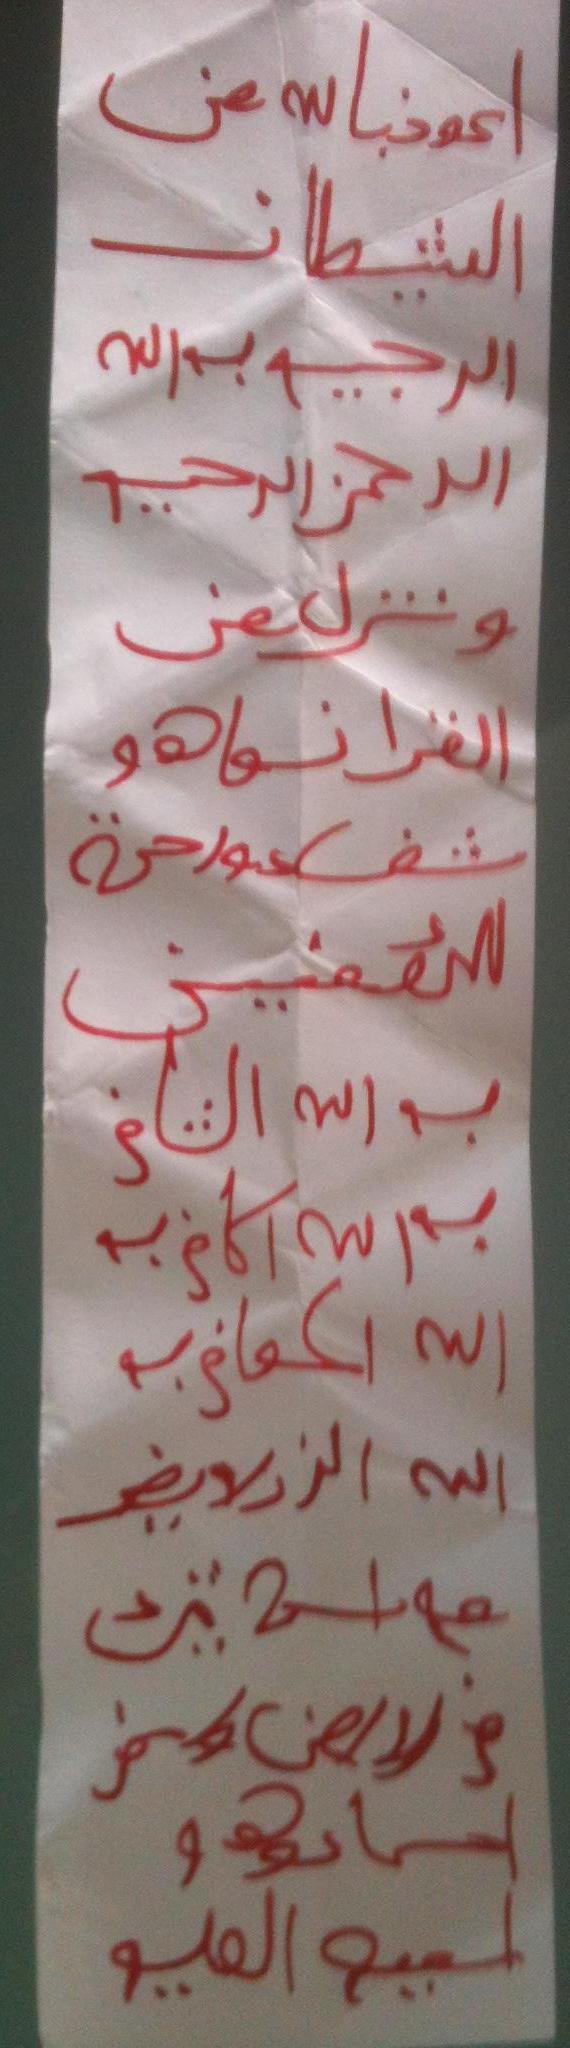 اعوذبا لله من
الشيطان
الرجيم بسم الله
الرحمن الرحيم
و ننزل من
القرا ن ما هو
شفاء و رحمة
للمؤمنين
بسم الله الشافي
بسم الله اكافي بسم
الله المعافي بسم
الله الذي لا يضر
مع اسمه
في لارض ولا في
السماء وهو
السميع العليم